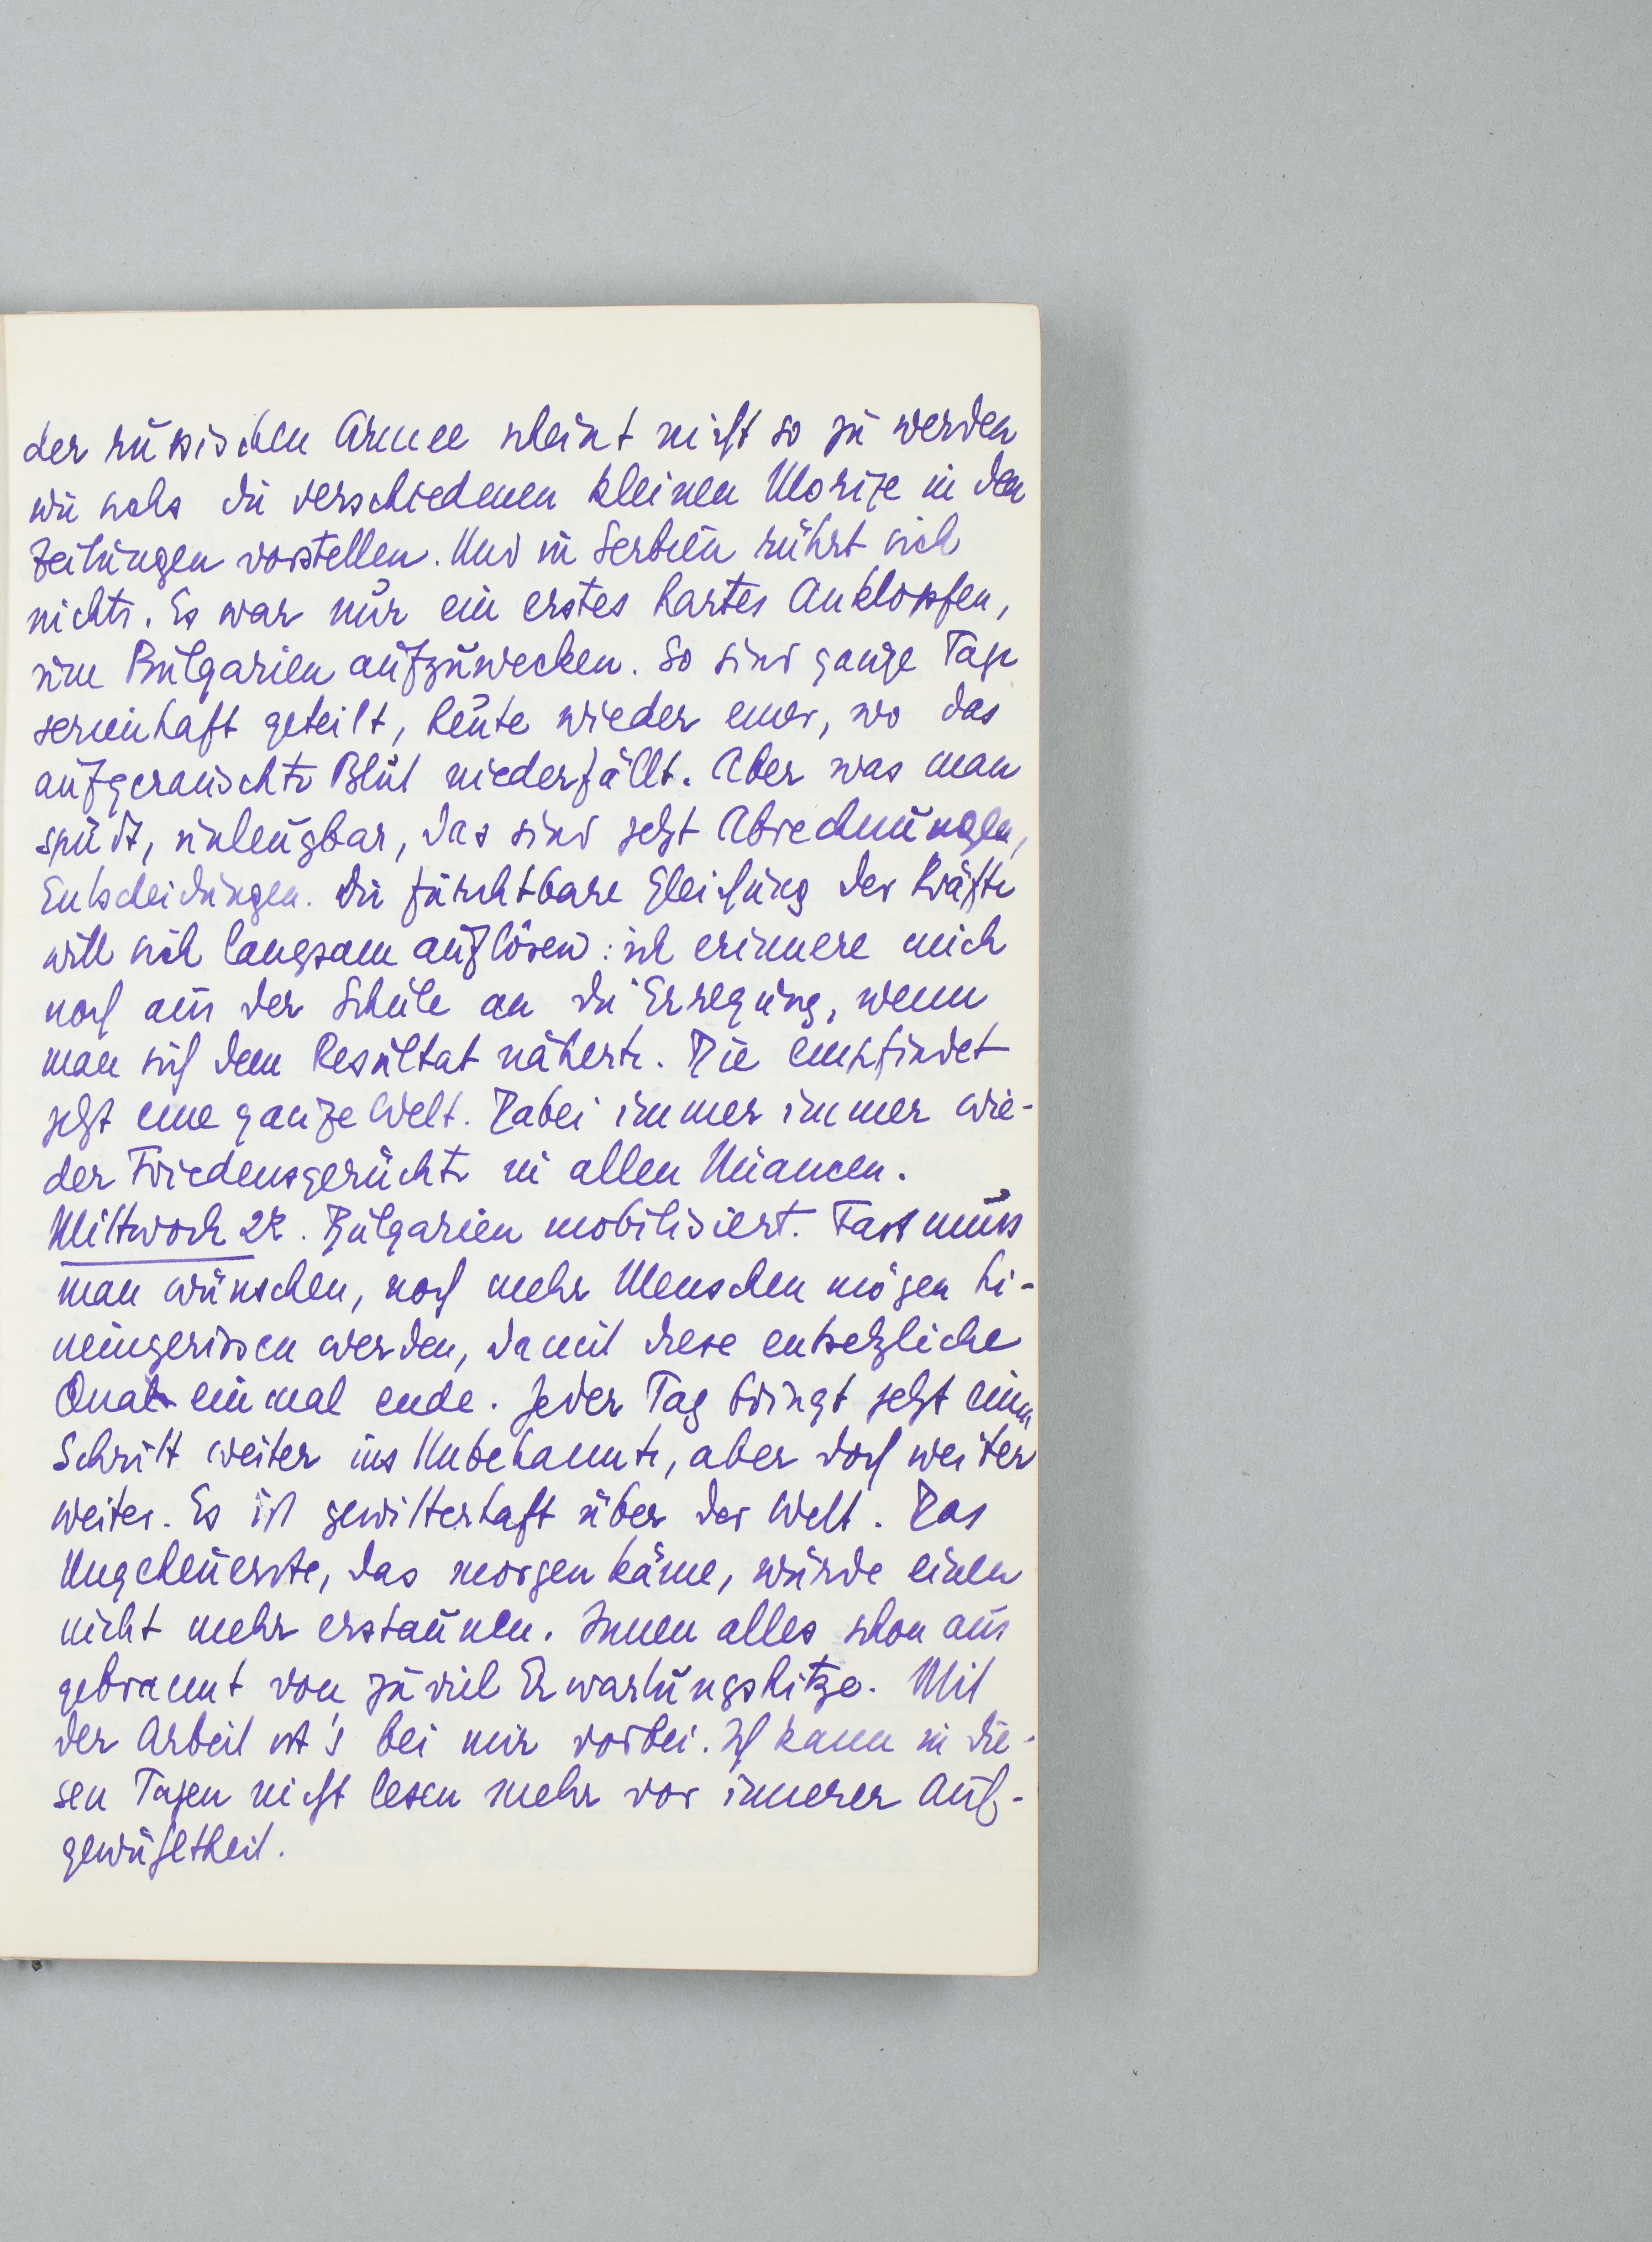 der russischen Armee scheint nicht so zu werden
wie sichs die verschiedenen kleinen Morize in den
Zeitungen vorstellen. Und in Serbien rührt sich
nichts. Es war nur ein erstes hartes Anklopfen,
um Bulgarien aufzuwecken. So sind ganze Tage
serienhaft geteilt, heute wieder einer, wo das
aufgerauschte Blut niederfällt. Aber was man
spürt, unleugbar, das sind jetzt Abrechnungen,
Entscheidungen. Die furchtbare Gleichung der Kräfte
will sich langsam auflösen: ich erinnere mich
noch aus der Schule an die Erregung, wenn
man sich dem Resultat näherte. Die empfindet
jetzt eine ganze Welt. Dabei immer immer wie-
der Friedensgerüchte in allen Nüancen.
Mittwoch 22. Bulgarien mobilisiert. Fast muss
man wünschen, noch mehr Menschen mögen hi-
neingerissen werden, damit diese entsetzliche
Qual einmal ende. Jeder Tag bringt jetzt einen
Schritt weiter ins Unbekannte, aber doch weiter
weiter. Es ist gewitterhaft über der Welt. Das
Ungeheuerste, das morgen käme, würde einen
nicht mehr erstaunen. Innen alles schon aus
gebrannt von zu viel Erwartungshitze. Mit
der Arbeit ist's bei mir vorbei. Ich kann in die-
sen Tagen nicht lesen mehr vor innerer Auf-
gewühltheit.